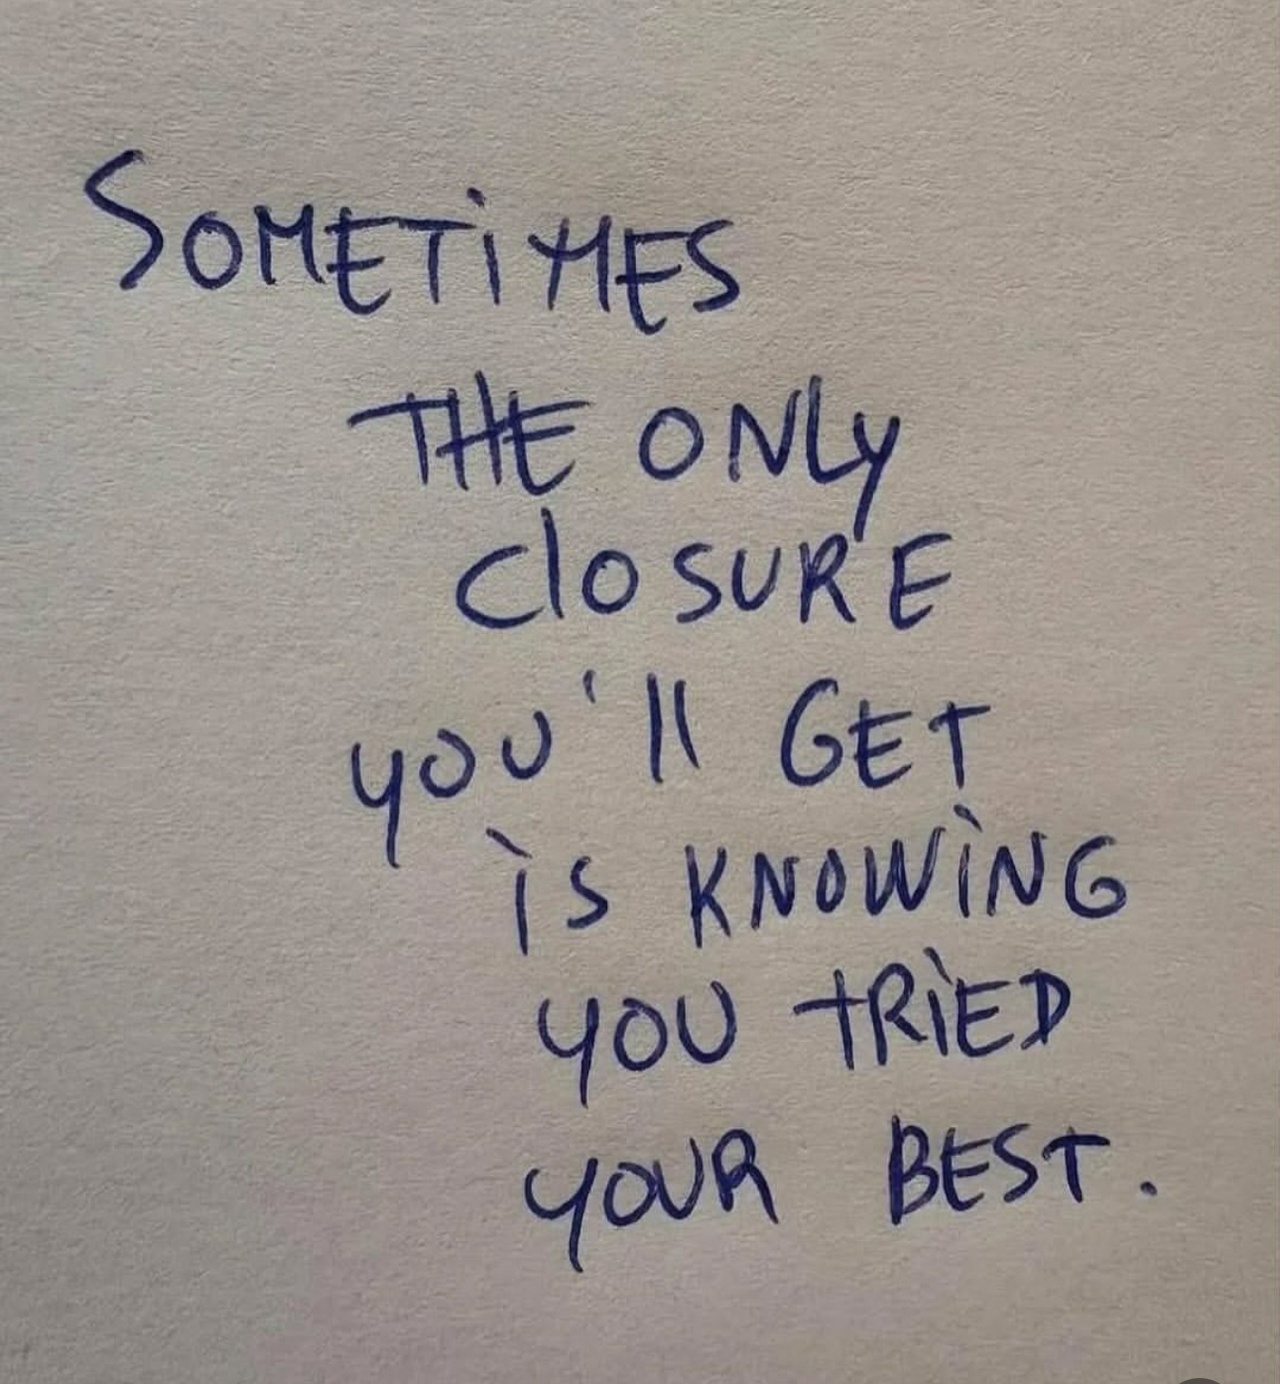 SOMETiMES
THE ONLy
ClOSURE
yOU'll GET
iS KNOWiNG
yOU tRiED
yOUR BEST.